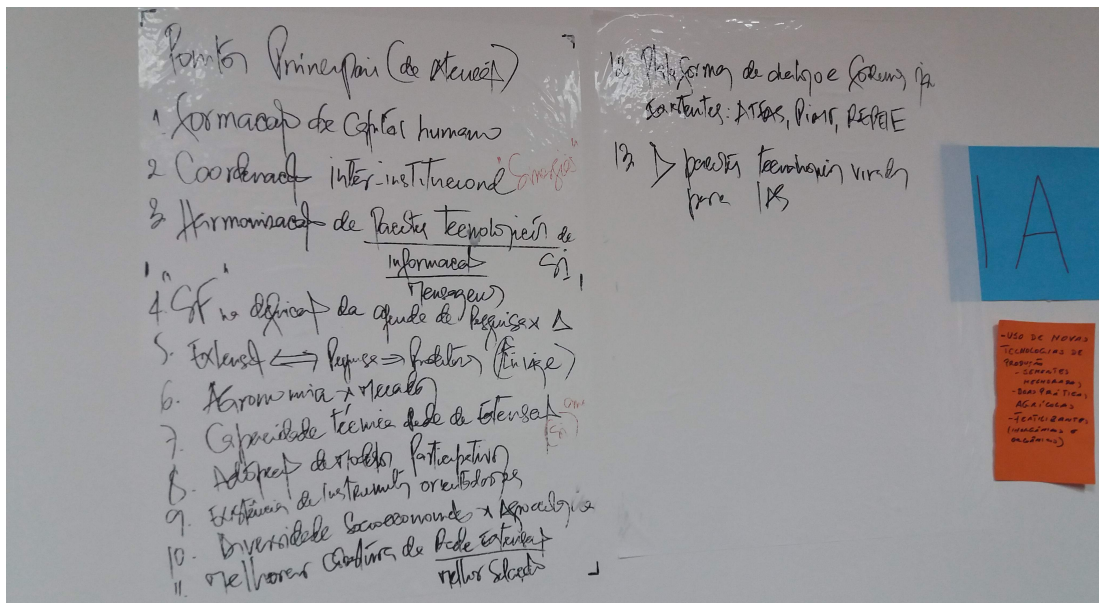 Pontos Principais (de Atenção)
1. Formação de Capital humano
2 Coordenação inter-institucional "Sinergias"
3. Harmonização de Pacotes tecnológicos de
informação
Mensagens
4. na definição da agenda de Pesquisa x Δ
5. Extensão ⟺ Pesquisa ⇒ Produtor (Linkage)
6. Agronomia x Mercado
7. Capacidade técnica Rede de Extensão
8. Adopção de modelos Participativos
9. Existência de instrumentos orientadores
10. Diversidade Socioeconomica x Agroecologica
11. Melhorar Cobertura de Rede Extensão
12. Plataformas de dialogo e Foruns ja
Existentes: REPETE
13. Δ pacotes tecnologicos virados
para
IA
-USO DE NOVAS
TECNOLOGIAS DE
PRODUÇÃO
- SEMENTES
MELHORADAS
-BOAS PRÁTICAS
AGRÍCOLAS
-FERTILIZANTES
(INORGÂNICOS E
ORGÂNICOS)